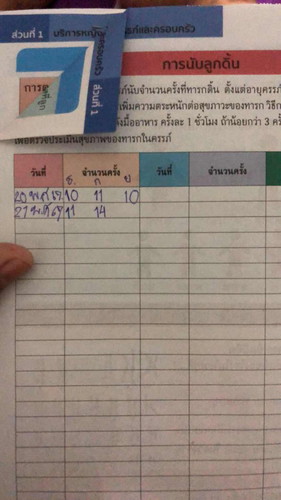 ส่วนที่ 1 บริการหญิง
และครอบครัว
ส่วนที่ 1
การนับลูกดิ้น
นับจำนวนครั้งที่ทารกดิ้น ตั้งแต่อายุครรภ์
เพิ่มความตระหนักต่อสุขภาวะของทารก
มื้ออาหาร ครั้งละ 1 ชั่วโมง ถ้าน้อยกว่า 3
เพื่อตรวจประเมินสุขภาพของทารกในครรภ์
วันที่ จำนวนครั้ง วันที่ จำนวนครั้ง
ช. ก ย
20 10 11 10
21 11 14